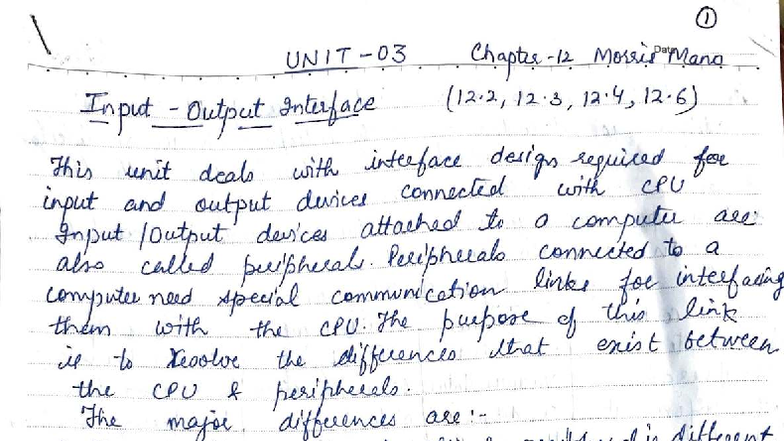 ①
Date
UNIT-03 Chapter-12 Morris Mano
Input - Output Interface (12.2, 12.3, 12.4, 12.6)
This unit deals with interface design required for
input and output devices connected with CPU
Input/Output devices attached to a computer are
also called peripherals. Peripherals connected to a
computer need special communication links for interfacing
them with the CPU. The purpose of this link
is to resolve the differences that exist between
the CPU & peripherals.
The major differences are:-
in different